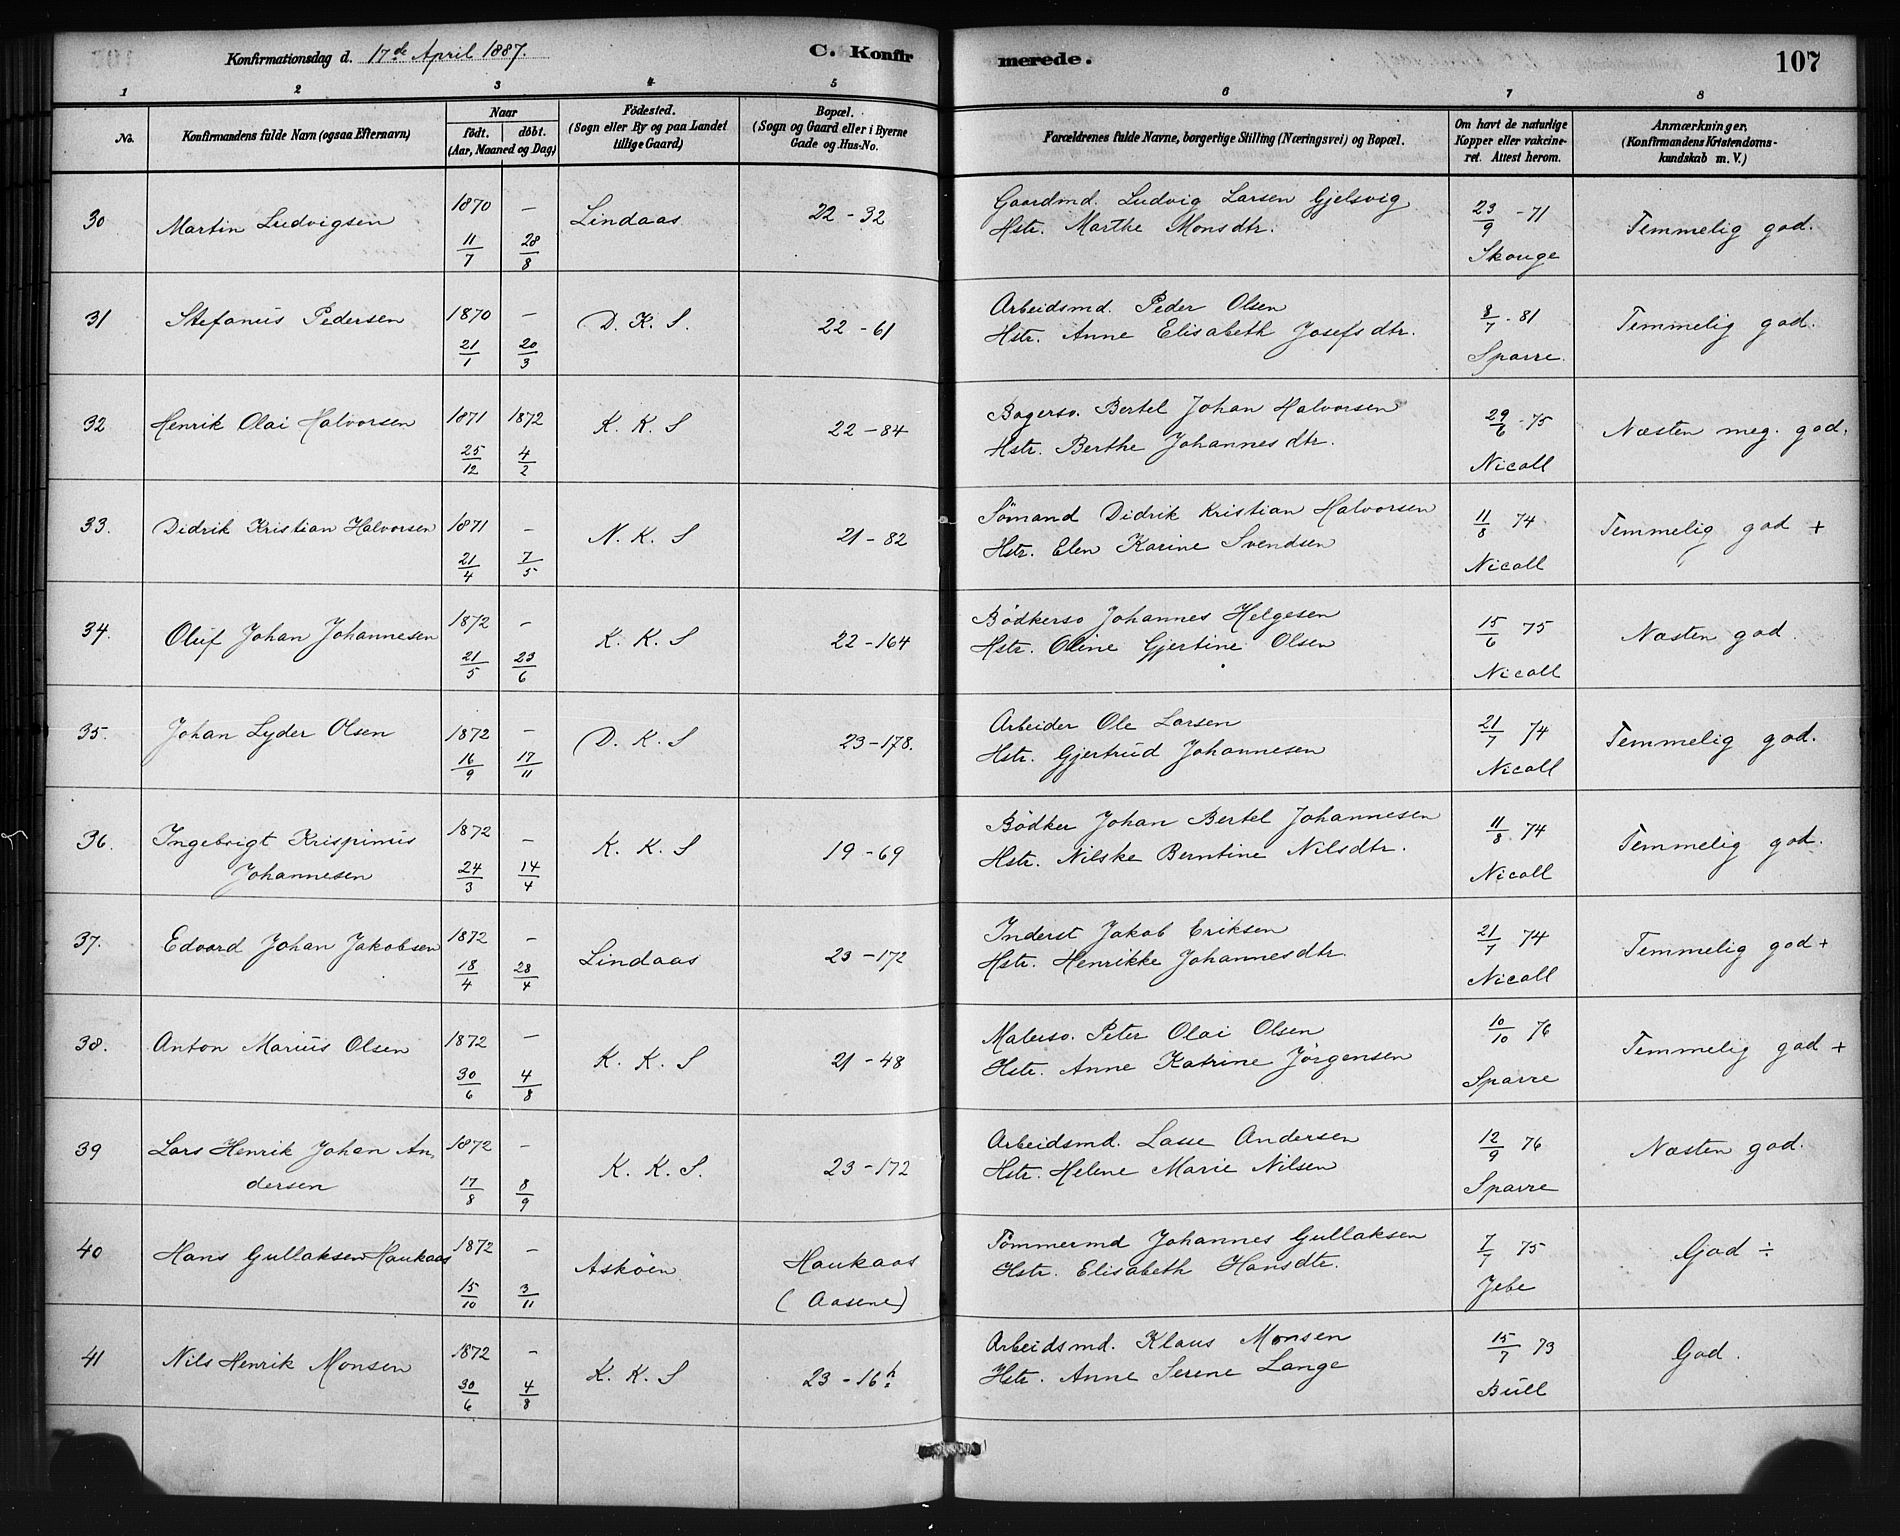 Konfirmationsdag d. 17de April 1887.
C. Konfirmerede.
107
1 2 3 4 5 6 7 8
No.
Konfirmandens fulde Navn (ogsaa Efternavn)
Naar
födt. döbt.
(Aar, Maaned og Dag)
Födested.
(Sogn eller By og paa Landet
tillige Gaard)
Bopæl.
(Sogn og Gaard eller i Byerne
Gade og Hus-No.
Forældrenes fulde Navne, borgerlige Stilling (Næringsvei) og Bopæl.
Om havt de naturlige
Kopper eller vakcine-
ret. Attest herom.
Anmærkninger.
(Konfirmandens Kristendoms-
kundskab m. V.)
30 Martin Ludvigsen 1870 – 11/7 28/8 Lindaas 22 - 32
Gaardmd. Ludvig Larsen Gjelsvig
Hstr. Marthe Monsdtr.
23/9 - 71 Skouge
Temmelig god.
31 Stefanus Pedersen 1870 – 21/1 20/3 D. K. S. 22 - 61
Arbeidsmd. Peder Olsen
Hstr. Anne Elisabeth Josefsdtr.
8/7 - 81 Sparre.
Temmelig god.
32 Henrik Olai Halvorsen 1871 1872 25/12 4/2 K. K. S 22 - 84
Bagersv. Bertel Johan Halvorsen
Hstr. Berthe Johannesdtr.
29/6 - 75 Nicoll
Næsten meg. god.
33. Didrik Kristian Halvorsen 1871 – 21/4 7/5 N. K. S 21 - 82
Sömand Didrik Kristian Halvorsen
Hstr. Elen Karine Svendsen
11/8 74 Nicoll
Temmelig god +
34. Oluf Johan Johannesen 1872 – 21/5 23/6 K. K. S 22 - 164
Bödkersv Johannes Helgesen
Hstr. Oline Gjertine Olsen
15/6 75 Nicoll
Næsten god.
35. Johan Lyder Olsen 1872 – 16/9 17/11 D. K. S 23 - 178.
Arbeider Ole Larsen
Hstr. Gjertrud Johannesen
21/7 74 Nicoll
Temmelig god.
36. Ingebrigt Krispinus
Johannesen 1872 – 24/3 14/4 K. K. S 19 - 69
Bödker Johan Bertel Johannesen
Hstr. Nilske Berntine Nilsdtr.
11/8. 74 Nicoll
Temmelig god.
37. Edvard Johan Jakobsen 1872 – 18/4 28/4 Lindaas 23 - 172
Inderst Jakob Eriksen
Hstr. Henrikke Johannesdtr.
21/7 74 Nicoll
Temmelig god +
38. Anton Marius Olsen 1872 – 30/6 4/8 K. K. S 21 - 48
Malersv. Peter Olai Olsen
Hstr. Anne Katrine Jörgensen
10/10 76 Sparre
Temmelig god +
39 Lars Henrik Johan An-
dersen 1872 – 17/8 8/9 K. K. S. 23 - 172
Arbeidsmd. Lasse Andersen
Hstr. Helene Marie Nilsen
12/9 76 Sparre
Næsten god.
40 Hans Gullaksen Haukaas 1872 – 15/10 3/11 Asköen. Haukaas
(Aasene)
Tömmermd Johannes Gullaksen
Hstr. Elisabeth Hansdtr.
7/7 75 Jebe
God ÷
41 Nils Henrik Monsen 1872 – 30/6 4/8 K. K. S 23 - 16 h
Arbeidsmd. Klaus Monsen
Hstr. Anne Serene Lange
15/7 73 Büll
God.